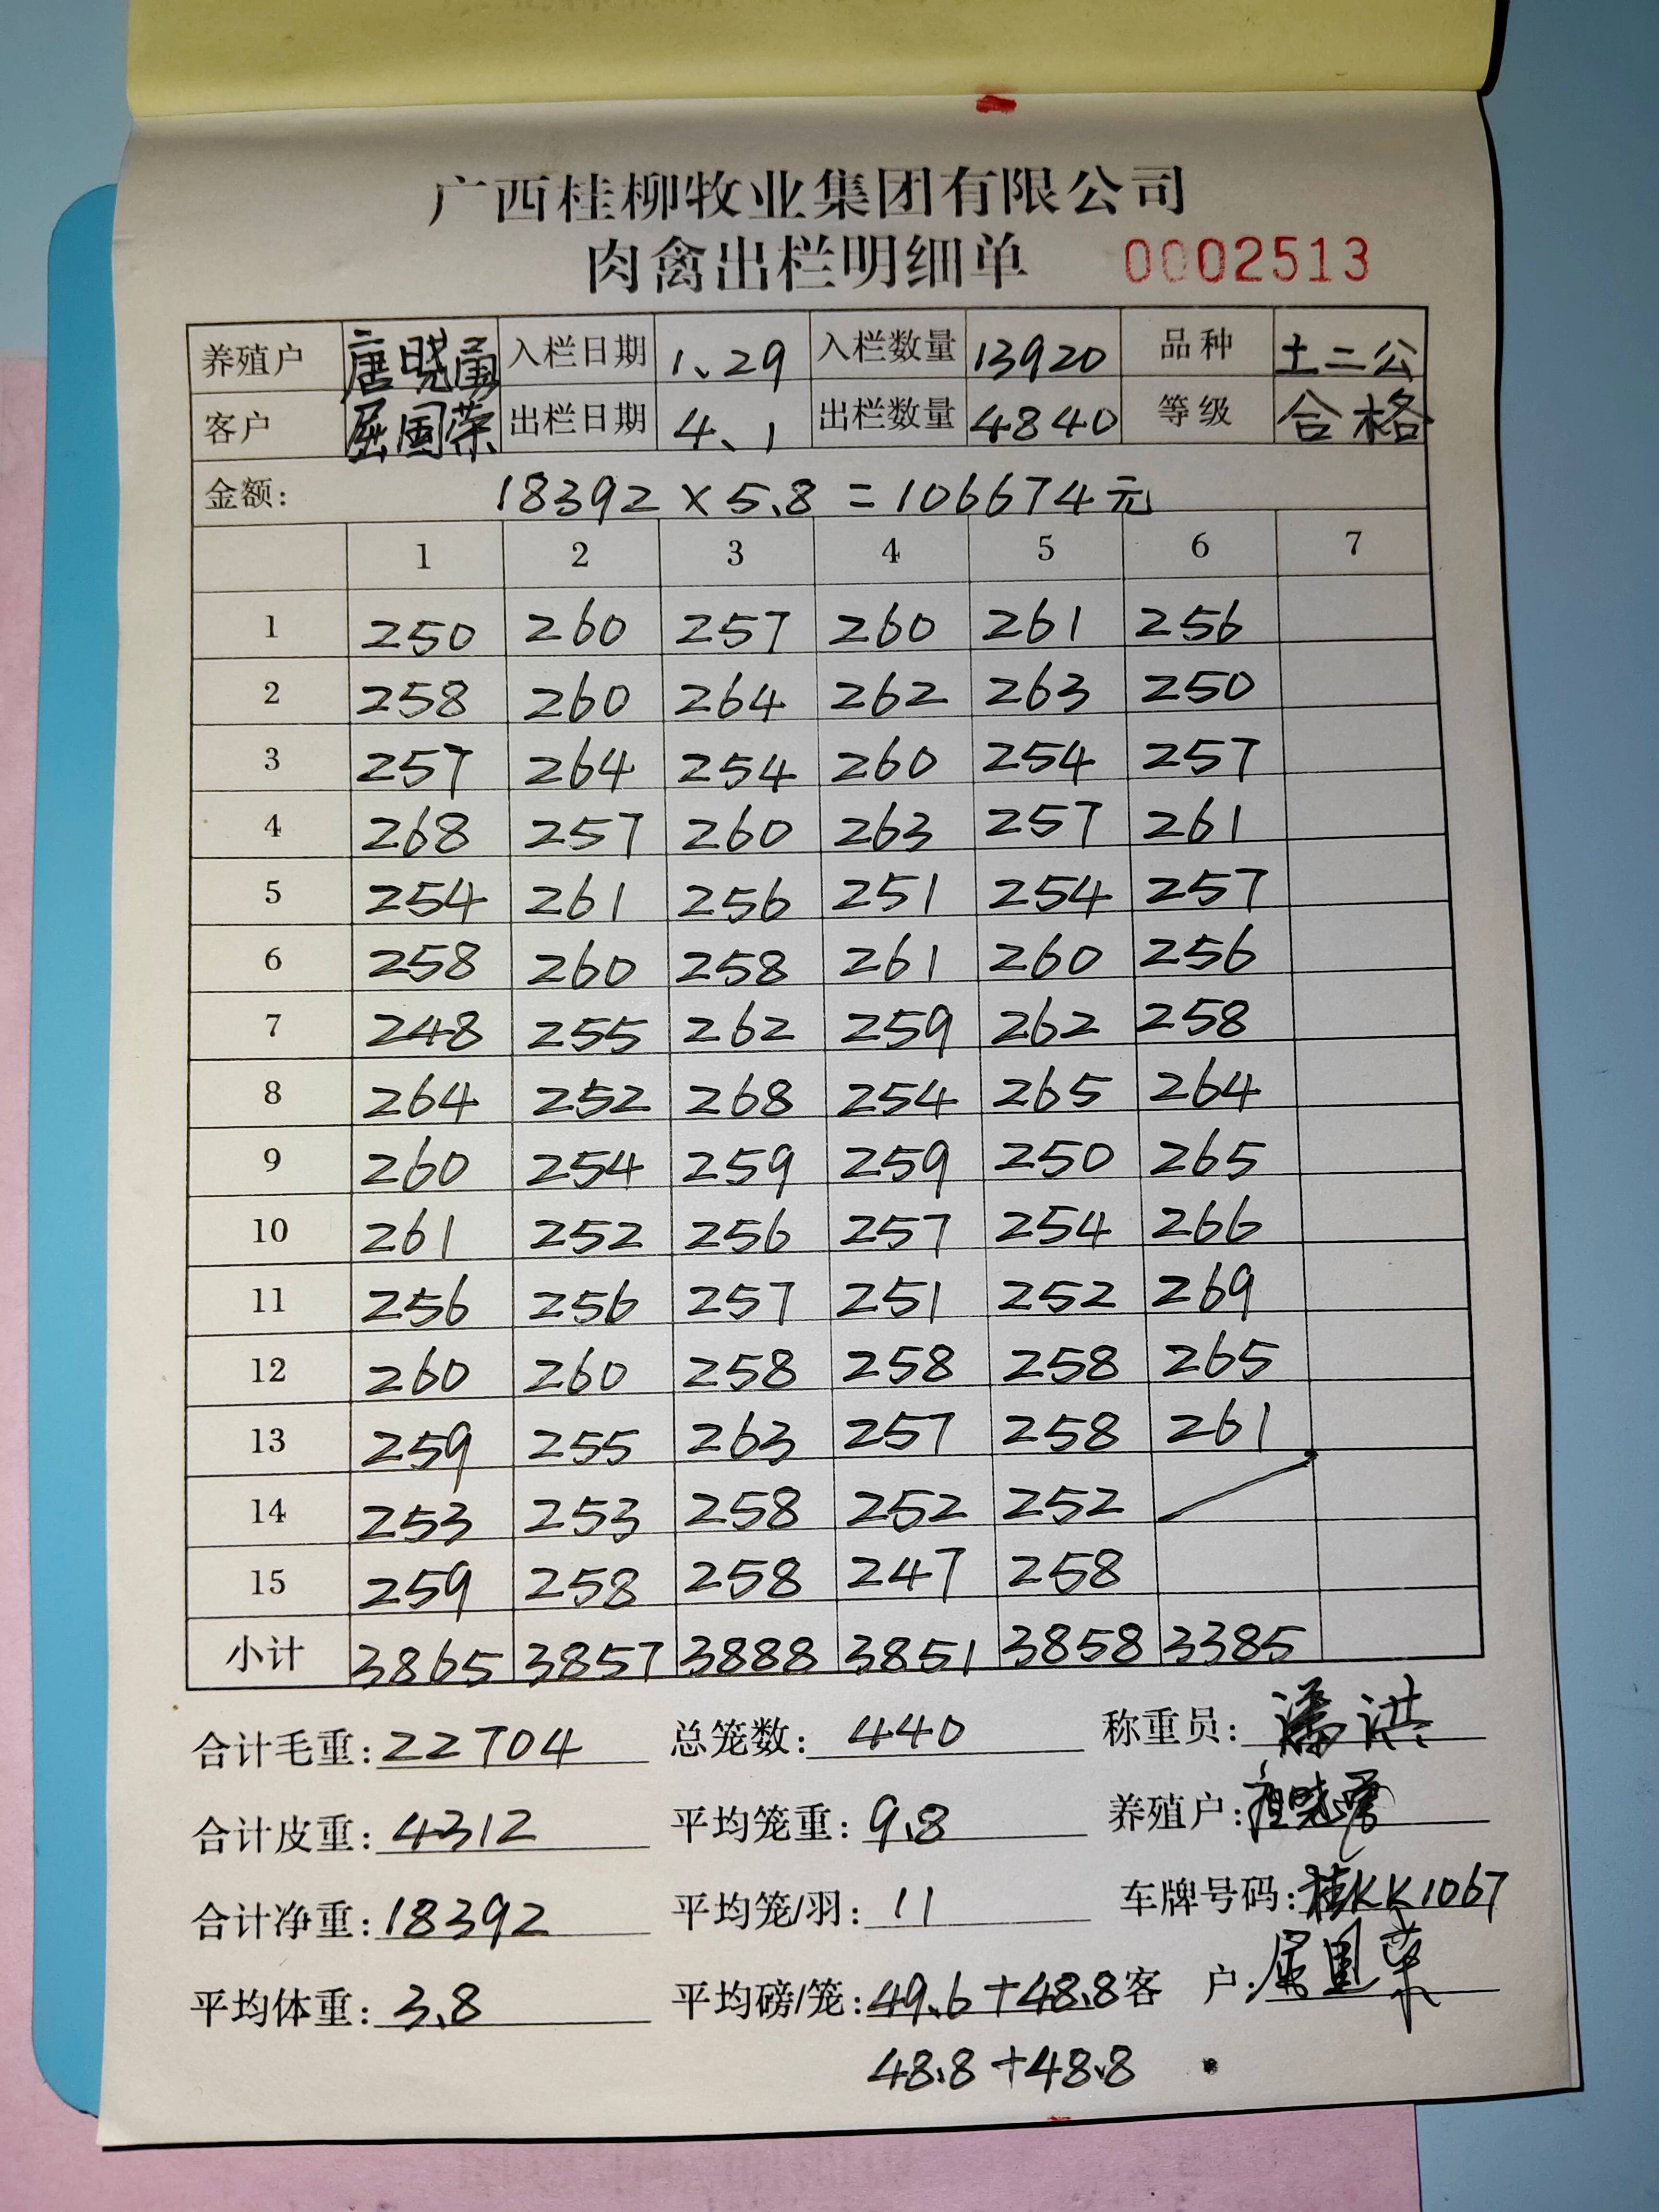 广西桂柳牧业集团有限公司
肉禽出栏明细单 0002513
养殖户 唐晓勇 入栏日期 1、29 入栏数量 13920 品种 土二公
客户 屈国荣 出栏日期 4、1 出栏数量 4840 等级 合格
金额: 18392×5.8=106674元
1 2 3 4 5 6 7
1 250 260 257 260 261 256
2 258 260 264 262 263 250
3 257 264 254 260 254 257
4 268 257 260 263 257 261
5 254 261 256 251 254 257
6 258 260 258 261 260 256
7 248 255 262 259 262 258
8 264 252 268 254 265 264
9 260 254 259 259 250 265
10 261 252 256 257 254 266
11 256 256 257 251 252 269
12 260 260 258 258 258 265
13 259 255 263 257 258 261
14 253 253 258 252 252
15 259 258 258 247 258
小计 3865 3857 3888 3851 3858 3385
合计毛重:22704 总笼数:440 称重员:潘洪
合计皮重:4312 平均笼重:9.8 养殖户:唐晓勇
合计净重:18392 平均笼/羽:11 车牌号码:桂KK1067
平均体重:3.8 平均磅/笼:49.6+48.8 客户:屈国荣
48.8+48.8